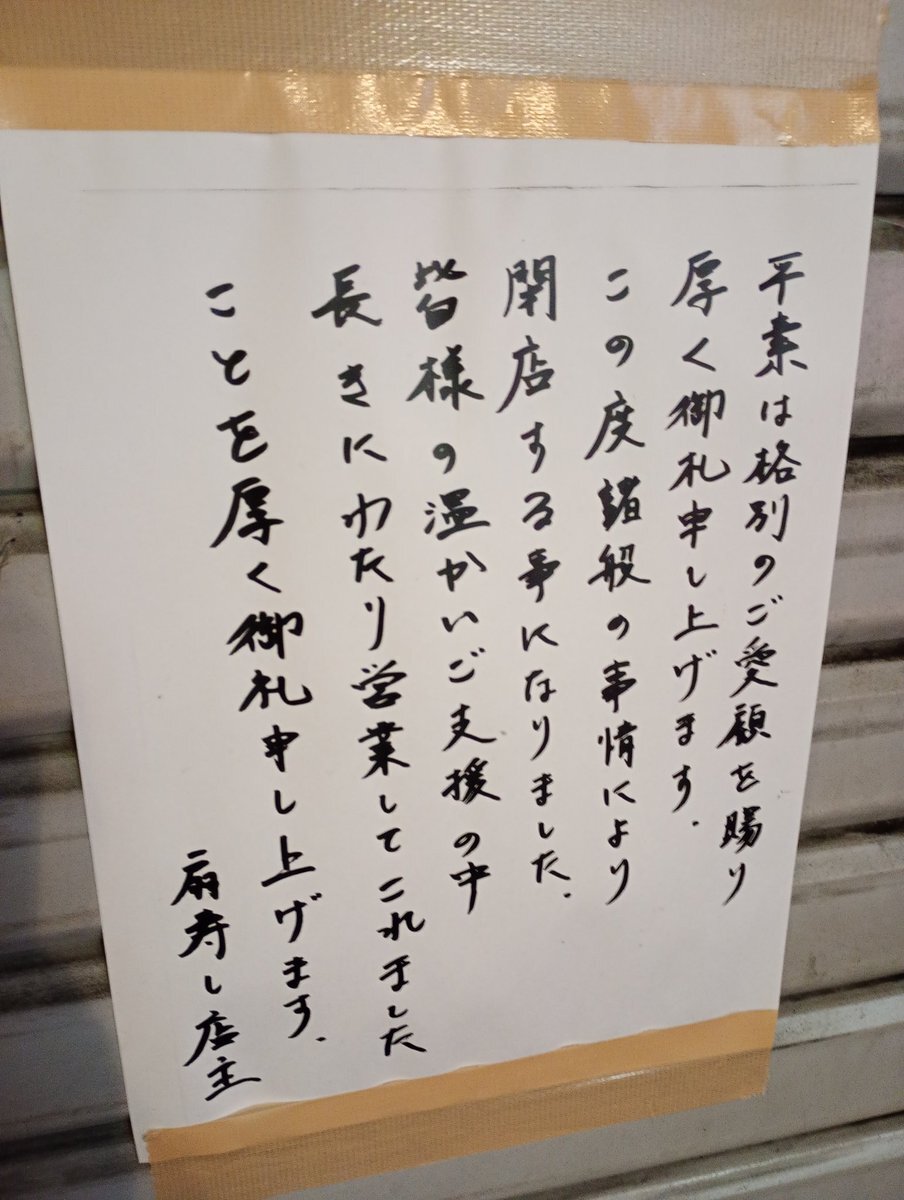 平素は格別のご愛顧を賜り
厚く御札申し上げます.
この度諸般の事情により
閉店する事になりました.
皆様の温かいご支援の中
長きにわたり営業してこれました
ことを厚く御礼申し上げます.
扇寿し店主